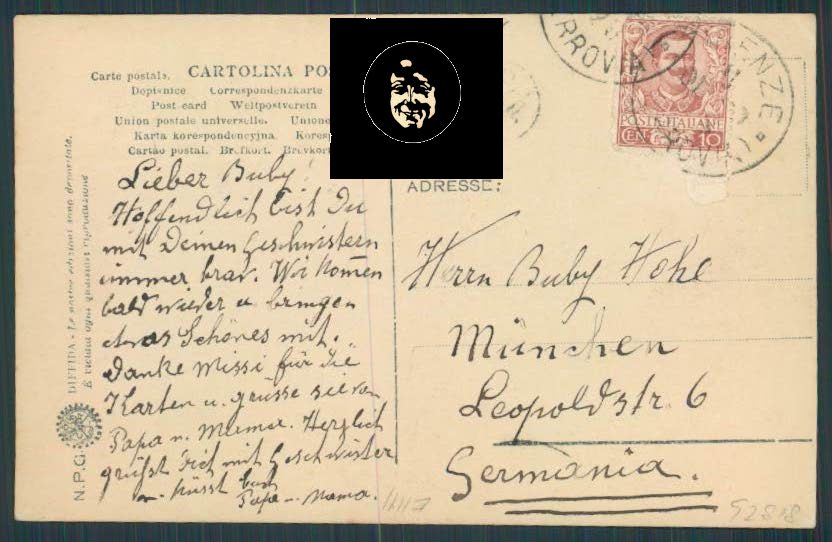 Carte postale. CARTOLINA POS
Dopisnice Correspondenzkarte
Post card Weltpostverein
Union postale universelle. Unione
Karta korespondencyjna. Kores
Cartão postal. Brefkort. Brevkort
ADRESSE:
FIRENZE
FERROVIA
POSTE ITALIANE
CENT. 10
Lieber Buby!
Hoffendlich bist Du
mit Deinen Geschwistern
immer brav. Wir kom̅en
bald wieder u bringen
etwas Schönes mit.
Danke Missi für die
Karten u. grüsse sie von
Papa u. Mama. Herzlich
grüßt Dich mit Geschwister
u. küsst Euch
Papa u. Mama.
Herrn Buby Hohe
München
Leopoldstr. 6
Germania.
N.P.G.
DIFFIDA - Le nostre edizioni sono depositate.
È vietata ogni qualsiasi riproduzione
52818